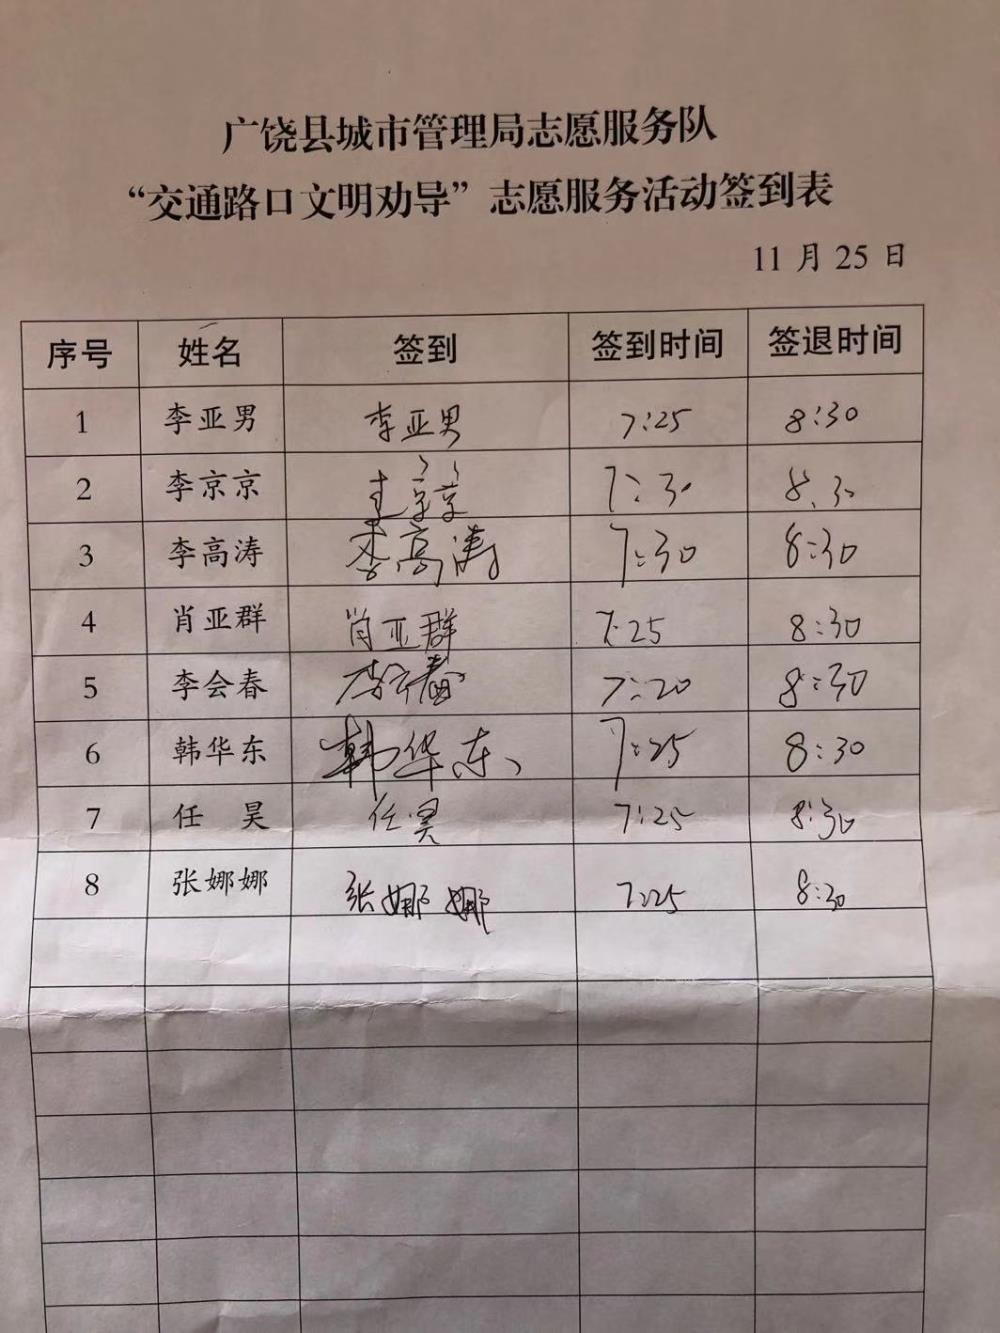 广饶县城市管理局志愿服务队
“交通路口文明劝导”志愿服务活动签到表
11 月 25 日
序号 姓名 签到 签到时间 签退时间
1 李亚男 李亚男 7:25 8:30
2 李京京 李京京 7:30 8:30
3 李高涛 李高涛 7:30 8:30
4 肖亚群 肖亚群 7:25 8:30
5 李会春 李会春 7:20 8:30
6 韩华东 韩华东 7:25 8:30
7 任 昊 任昊 7:25 8:30
8 张娜娜 张娜娜 7:25 8:30